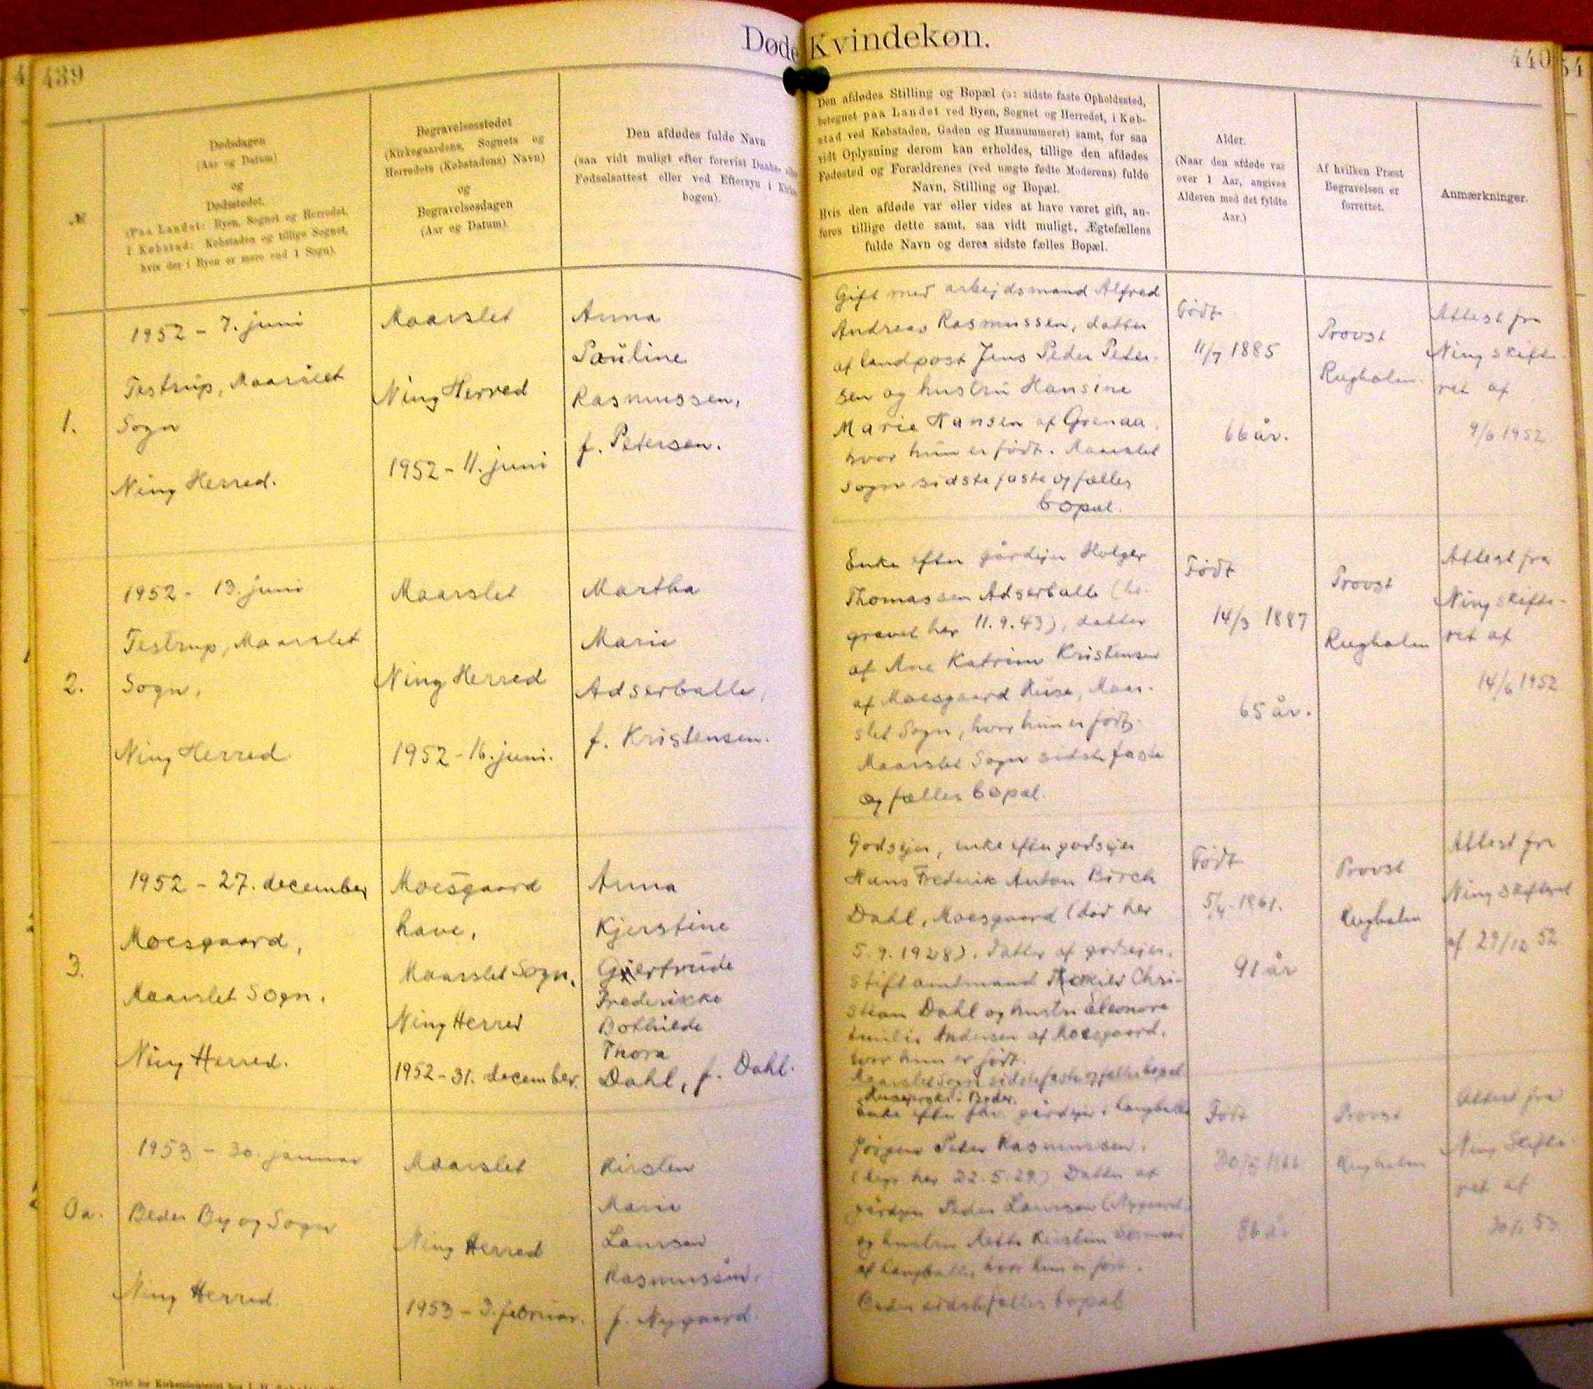 Døde Kvindekøn.
439
440
54
№
Dødsdagen
(Aar og Datum)
og
Dødsstedet.
(Paa Landet: Byen, Sognet og Herredet,
i Købstad: Købstaden og tillige Sognet,
hvis der i Byen er mere end 1 Sogn).
Begravelsesstedet
(Kirkegaardens, Sognets og
Herredets (Købstadens) Navn)
og
Begravelsesdagen
(Aar og Datum).
Den afdødes fulde Navn
(saa vidt muligt efter forevist Daabs-
Fødselsattest eller ved Eftersyn i
bogen).
Den afdødes Stilling og Bopæl (ɔ: sidste faste Opholdssted,
betegnet paa Landet ved Byen, Sognet og Herredet, i Køb-
stad ved Købstaden, Gaden og Husnummeret) samt, for saa
vidt Oplysning derom kan erholdes, tillige den afdødes
Fødested og Forældrenes (ved uægte fødte Moderens) fulde
Navn, Stilling og Bopæl.
Hvis den afdøde var eller vides at have været gift, an-
føres tillige dette samt, saa vidt muligt, Ægtefællens
fulde Navn og deres sidste fælles Bopæl.
Alder.
(Naar den afdøde var
over 1 Aar, angives
Alderen med det fyldte
Aar.)
Af hvilken Præst
Begravelsen er
forrettet.
Anmærkninger.
1.
1952 - 7. juni
Testrup, Maarslet
Sogn
Ning Herred.
Maarslet
Ning Herred
1952 - 11. juni
Anna
Pauline
Rasmussen,
f. Petersen.
Gift med arbejdsmand Alfred
Andreas Rasmussen, datter
af landpost Jens Peder Peter-
sen og hustru Hansine
Marie Hansen af Grenaa,
hvor hun er født. Maarslet
Sogn sidste faste og fælles
bopæl.
Født
11/7 1885
66 år.
Provst
Rugholm.
Attest fra
Ning skifte-
ret af
9/6 1952
2.
1952 - 13. juni
Testrup, Maarslet
Sogn,
Ning Herred
Maarslet
Ning Herred
1952 - 16. juni.
Martha
Marie
Adserballe,
f. Kristensen.
Enke efter gårdejer Holger
Thomassen Adserballe (be-
gravet her 11.9.43), datter
af Ane Katrine Kristensen
af Moesgaard Huse, Maar-
slet Sogn, hvor hun er født.
Maarslet Sogn sidste faste
og fælles bopæl.
Født
14/3 1887
65 år.
Provst
Rugholm
Attest fra
Ning skifte-
ret af
14/6 1952
3.
1952 - 27. december
Moesgaard,
Maarslet Sogn.
Ning Herred.
Moesgaard
have,
Maarslet Sogn,
Ning Herred
1952 - 31. december.
Anna
Kjerstine
Giertrude
Frederikke
Bothilde
Thora
Dahl, f. Dahl.
Godsejer, enke efter godsejer
Hans Frederik Anton Birch
Dahl, Moesgaard (død her
5.9.1928). Datter af godsejer,
stiftamtmand Torkild Chri-
stian Dahl og hustru Eleonora
Emilie Andersen af Moesgaard,
hvor hun er født.
Maarslet Sogn sidste faste og fælles bopæl
Født
5/4 1861.
91 år
Provst
Rugholm
Attest fra
Ning skifteret
af 29/12 52
0a.
1953 - 30. januar
Beder By og Sogn
Ning Herred
Maarslet
Ning Herred
1953 - 3. februar.
Kirsten
Marie
Laursen
Rasmussen,
f. Nygaard
Beder.
Enke efter fhv. gårdejer i Langballe
Jørgen Peter Rasmussen.
(begr. her 22.5.29) Datter af
gårdejer Peder Laursen (Nygaard)
og hustru Mette Kirstine
af Langballe, hvor hun er født.
Beder sidste fælles bopæl
Født
1866
86 år
Provst
Rugholm
Attest fra
Ning Skifte-
ret af
53